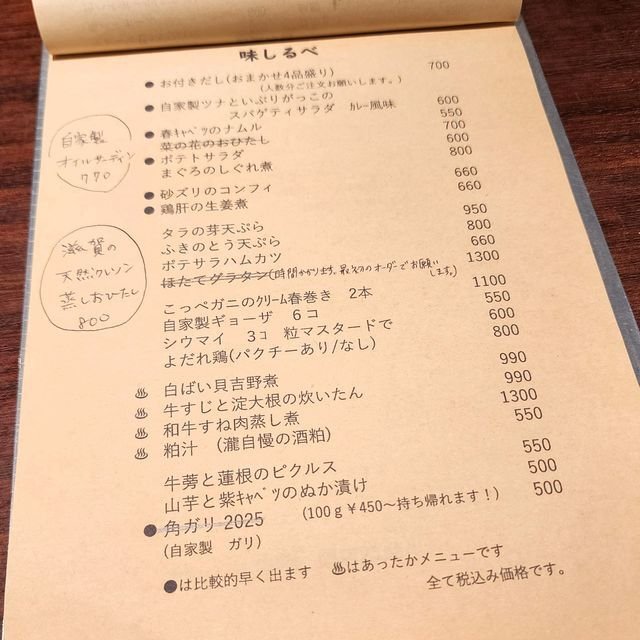 味しるべ
●お付きだし(おまかせ4品盛り) 700
(人数分ご注文お願いします。)
●自家製ツナといぶりがっこの
スパゲティサラダ ｶﾚｰ風味 600
●春ｷｬﾍﾞﾂのナムル 550
菜の花のおひたし 700
●ポテトサラダ 600
まぐろのしぐれ煮 800
●砂ズリのコンフィ 660
●鶏肝の生姜煮 660
自家製
オイルサーディン
770
タラの芽天ぷら 950
ふきのとう天ぷら 800
ポテサラハムカツ 660
ほたてグラタン(時間かかります。最初のオーダーでお願いします。) 1300
滋賀の
天然クレソン
蒸しおひたし
800
こっぺガニのｸﾘｰﾑ春巻き 2本 1100
自家製ギョーザ 6コ 550
シウマイ 3コ 粒マスタードで 600
よだれ鶏(パクチーあり/なし) 800
♨ 白ばい貝吉野煮 990
♨ 牛すじと淀大根の炊いたん 990
♨ 和牛すね肉蒸し煮 1300
♨ 粕汁 (瀧自慢の酒粕) 550
牛蒡と蓮根のピクルス 550
山芋と紫ｷｬﾍﾞﾂのぬか漬け 500
●角ガリ 2025 (100ｇ￥450～持ち帰れます！) 500
(自家製 ガリ)
●は比較的早く出ます ♨はあったかメニューです
全て税込み価格です。